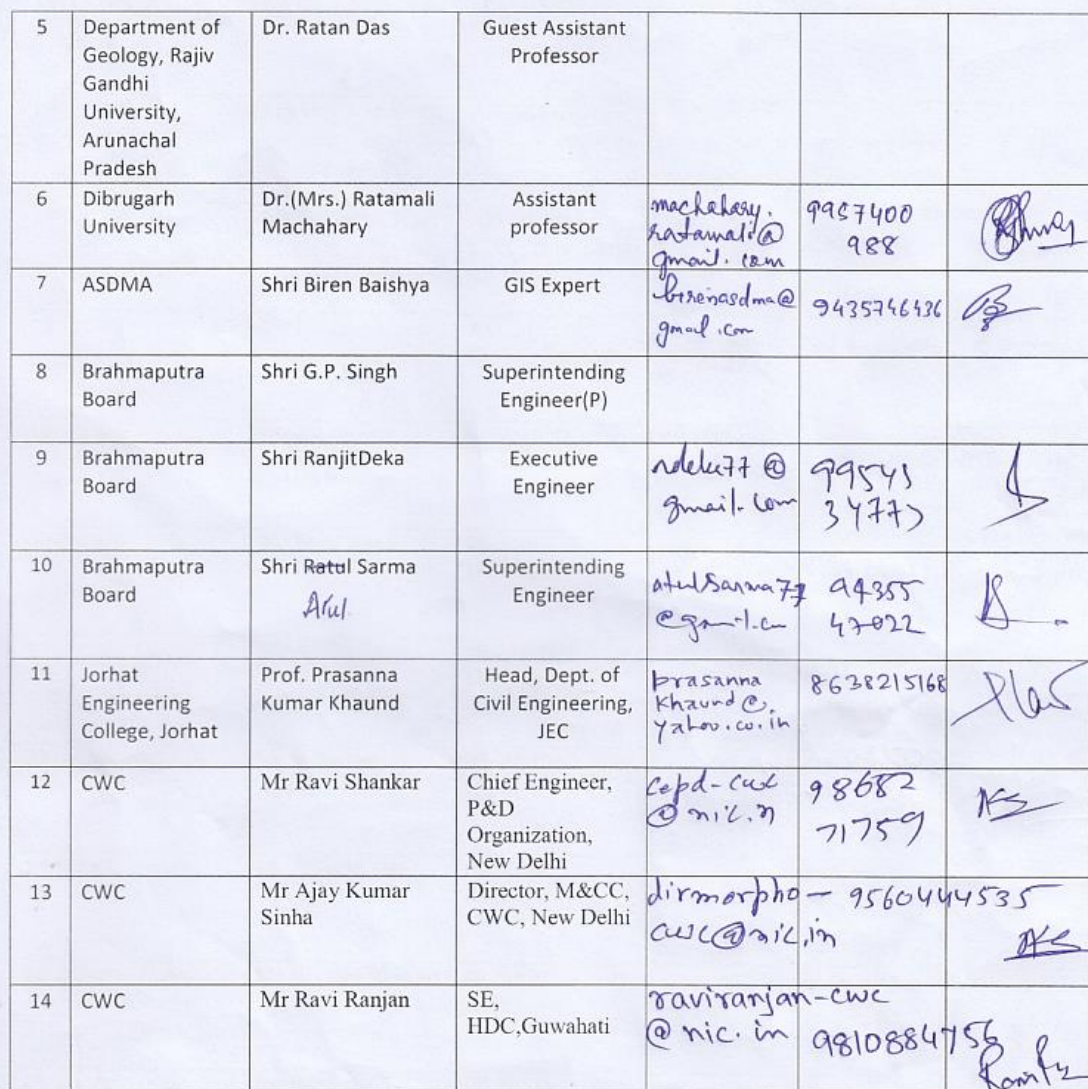 5
Department of
Geology, Rajiv
Gandhi
University,
Arunachal
Pradesh
Dr. Ratan Das
Guest Assistant
Professor
6
Dibrugarh
University
Dr.(Mrs.) Ratamali
Machahary
Assistant
professor
machahary.
ratamali@
gmail.com
9957400
988
7
ASDMA
Shri Biren Baishya
GIS Expert
birenasdma@
gmail.com
9435746436
8
Brahmaputra
Board
Shri G.P. Singh
Superintending
Engineer(P)
9
Brahmaputra
Board
Shri RanjitDeka
Executive
Engineer
gmail.com
10
Brahmaputra
Board
Shri Ratul Sarma
Atul
Superintending
Engineer
atulsarma77
@gmail.com
94355
47022
11
Jorhat
Engineering
College, Jorhat
Prof. Prasanna
Kumar Khaund
Head, Dept. of
Civil Engineering,
JEC
prasanna
khaund@
yahoo.co.in
8638215168
12
CWC
Mr Ravi Shankar
Chief Engineer,
P&D
Organization,
New Delhi
cepd-cwc
@nic.in
98682
71759
13
CWC
Mr Ajay Kumar
Sinha
Director, M&CC,
CWC, New Delhi
dirmorpho-
cwc@nic.in
9560444535
14
CWC
Mr Ravi Ranjan
SE,
HDC,Guwahati
raviranjan-cwc
@nic.in
9810884756